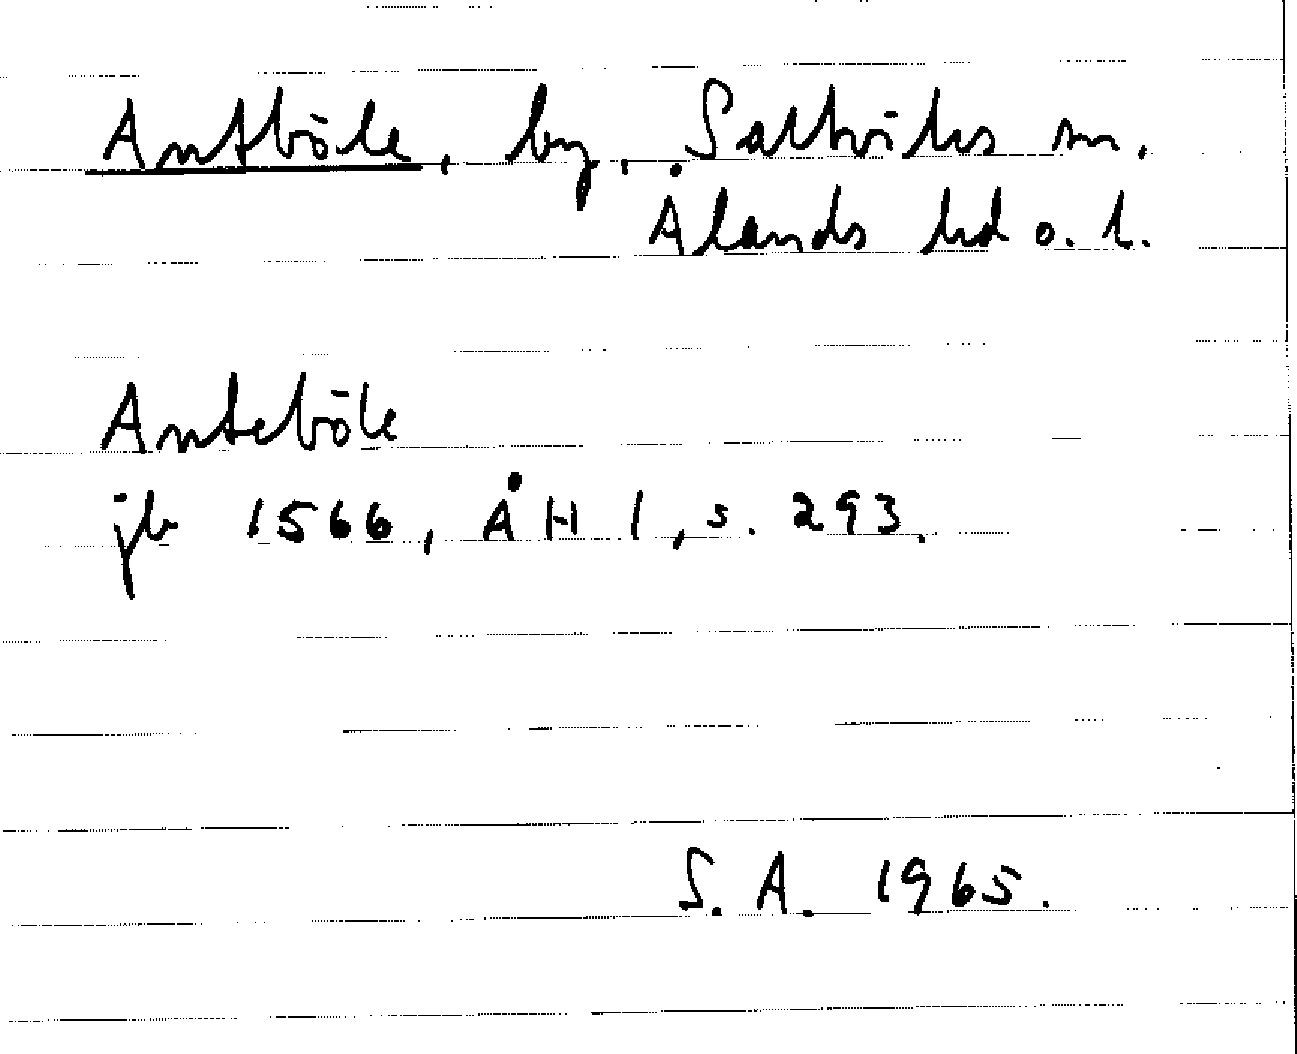 Antböle, by, Saltviks sn,
Ålands hd o. l.
Anteböle
jb 1566, ÅH 1, s. 293.
S. A. 1965.